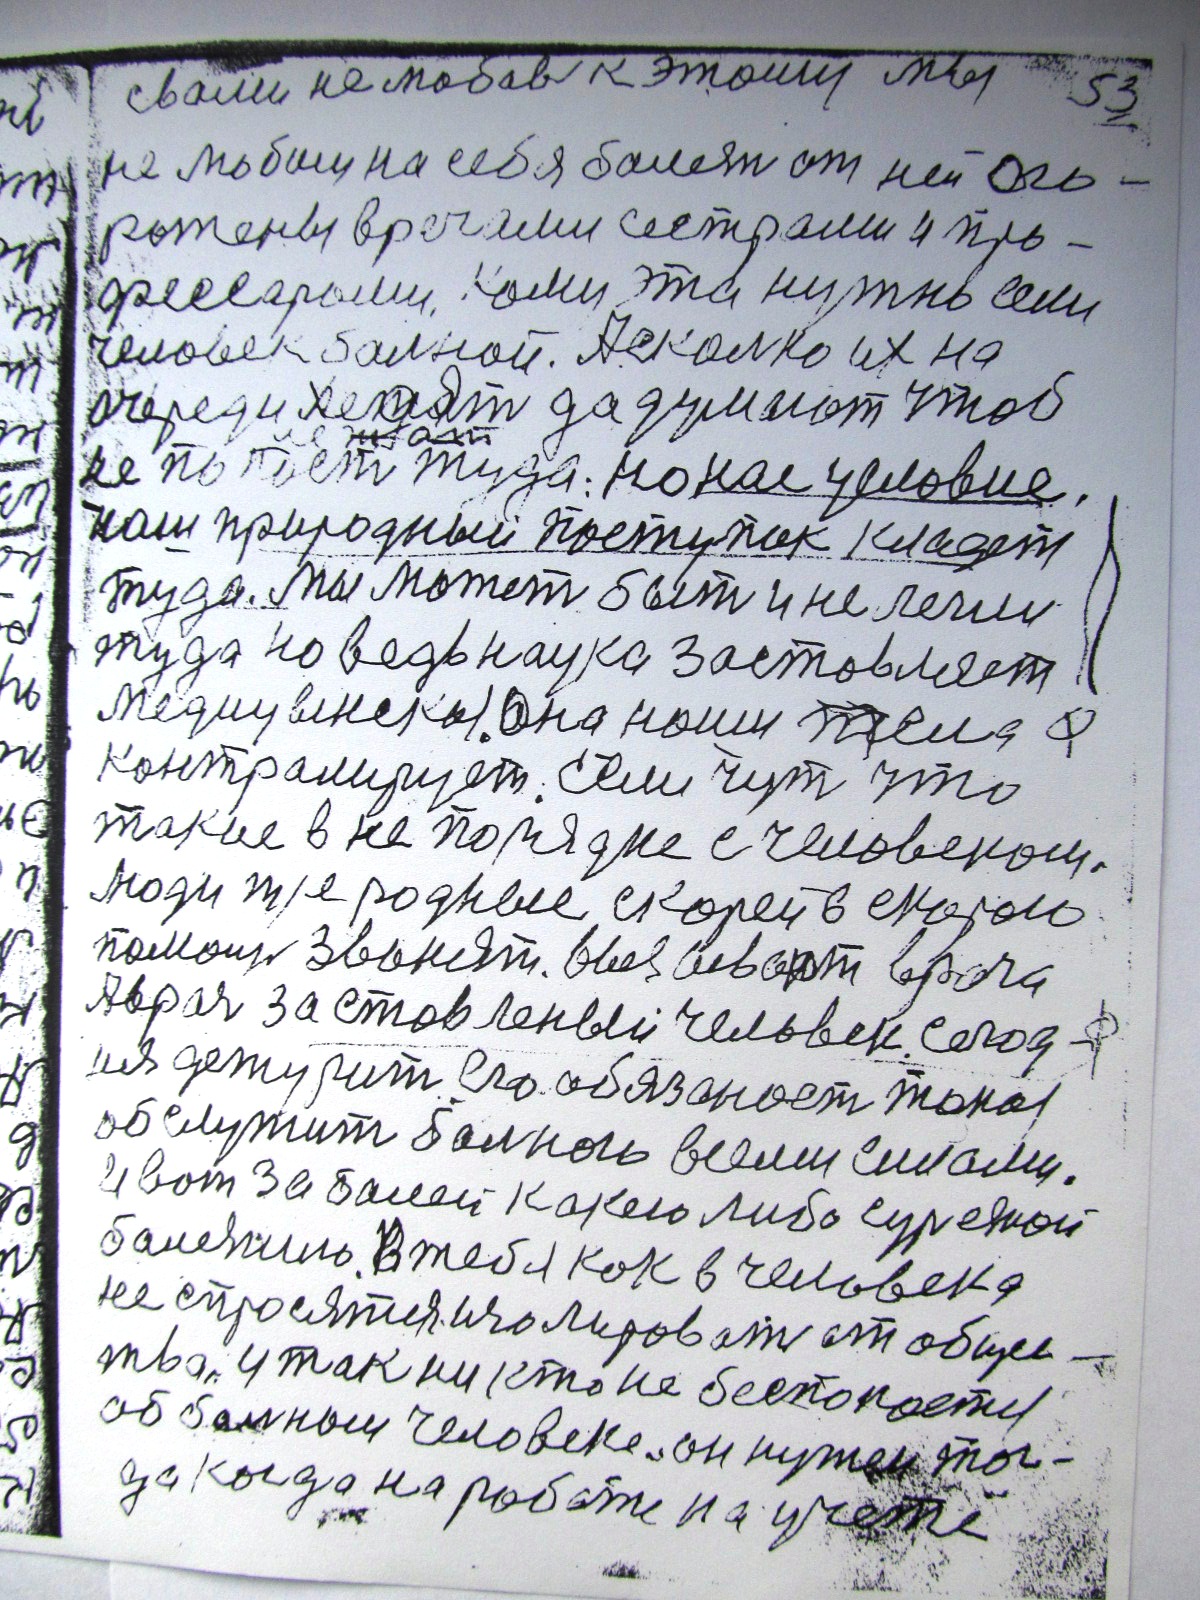 свами не любовь к этому мы 53
не любом на себя болеят от ней ого-
рожены врачами сестрами и про-
фессарами. Кому эта нужно если
человек балной. А сколко их на
очереди лежат да думают чтоб
не попаст туда. но нас условие.
наш природный поступок кладет
туда. мы может быт и не легли
туда но ведь наука заставляет
Она наши тела
контралирует. Если чут что
такие в не порядке с человеком.
люди же родные скорей в скорою
помощ звонят. вызывают врача
А врач заставленый человек. Сегод-
ня дежурит. Его обязаност такая
обслужит балного всеми силами.
И вот заболей какею либо сурезной
болезнию. В тебя как в человека
не спросятся изолироват от общес-
тва. и так ни кто не беспокоется
об балным человеке. он нужен тог-
да когда на работе на учете